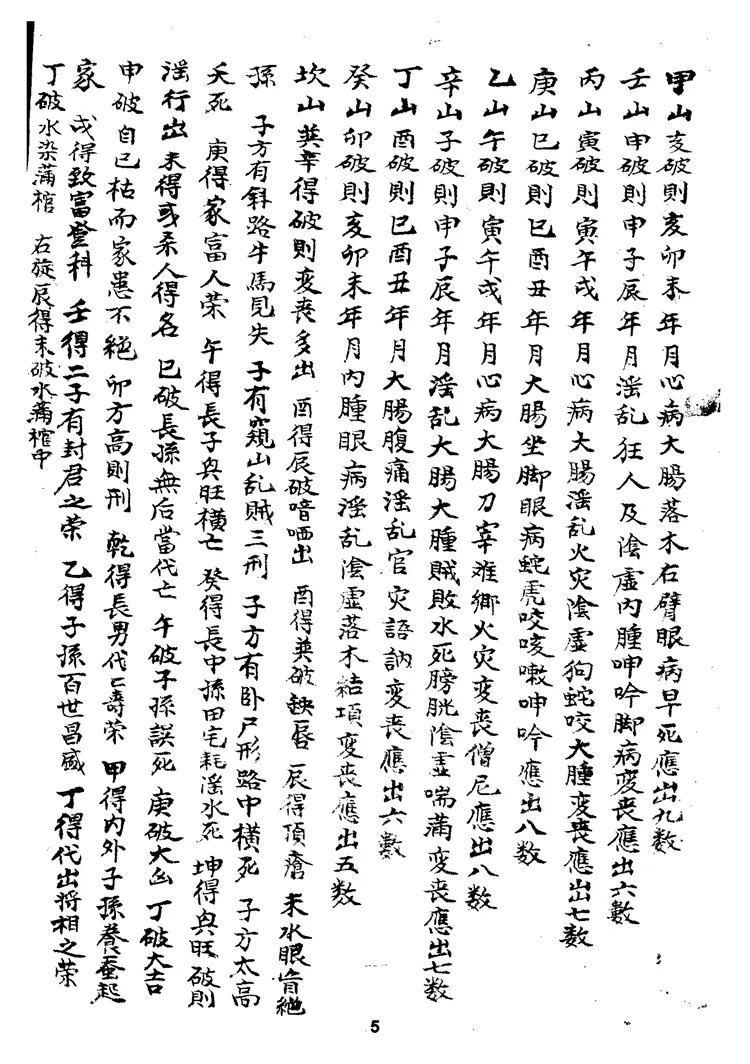 甲山亥破則亥卯未年月心病大腸落木右臂眼病早死應出九数
壬山申破則申子辰年月淫乱狂人及陰虛内腫呻吟脚病変丧應出六數
丙山寅破則寅午戌年月心病大腸淫乱火灾陰虛狗蛇咬大腫変丧應出七数
庚山巳破則巳酉丑年月大腸坐脚眼病蛇虎咬咳嗽呻吟應出八數
乙山午破則寅午戌年月心病大腸刀宰难鄉火灾変丧僧尼應出八数
辛山子破則申子辰年月淫乱大腸大腫賊敗水死膀胱陰虛喘满変丧應出七数
丁山酉破則巳酉丑年月大腸腹痛淫乱官灾語訥変丧應出六數
癸山卯破則亥卯未年月内腫眼病淫乱陰虛落木結項変丧應出五数
坎山巽辛得破則変丧多出 酉得辰破喑哂出 酉得巽破鈌唇 辰得頂瘡 未水眼盲絶
孫 子方有斜路牛馬見失 子有窺山乱賊三刑 子方有卧尸形路中橫死 子方太高
夭死 庚得家富人荣 午得長子與旺橫亡 癸得長中孫田宅耗淫水死 坤得與旺 破則
淫行出 未得或杀人得名 巳破長孫無后當代亡 午破子孫誤死 庚破大凶 丁破大吉
申破自已枯而家患不絶 卯方高則刑 乾得長男代亡壽荣 甲得内外子孫養蚕起
家 戌得致富登科 壬得二子有封君之荣 乙得子孫百世昌盛 丁得代出將相之荣
丁破水染蒲棺 右旋辰得未破水蒲棺中
5